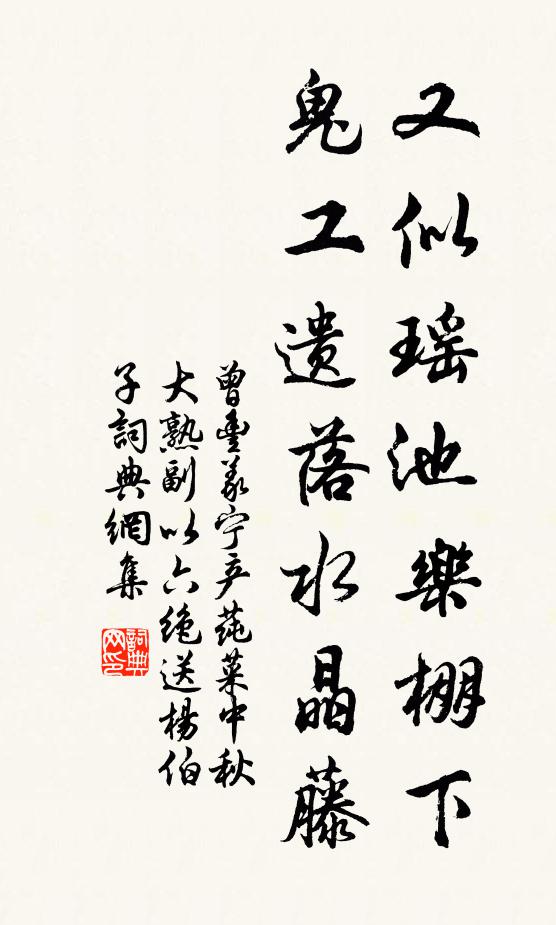 又似瑶池樂棚下
鬼工遗落水晶藤
曾豊義宁产莼菜中秋
大熟副以六绝送楊伯
子詞典網集
詞典网印